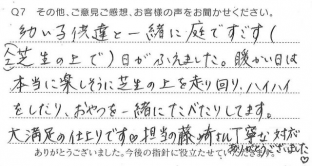 Q7 その他、ご意見ご感想、お客様の声をお聞かせください。
幼い子供達と一緒に庭ですごす(
人工芝生の上で)日がふえました。暖かい日は
本当に楽しそうに芝生の上を走り回り、ハイハイ
をしたり、おやつを一緒にたべたりしてます。
大満足の仕上りです♡担当の藤崎さん丁寧な対応
ありがとうございました♡
ありがとうございました。今後の指針に役立たせていただきます。